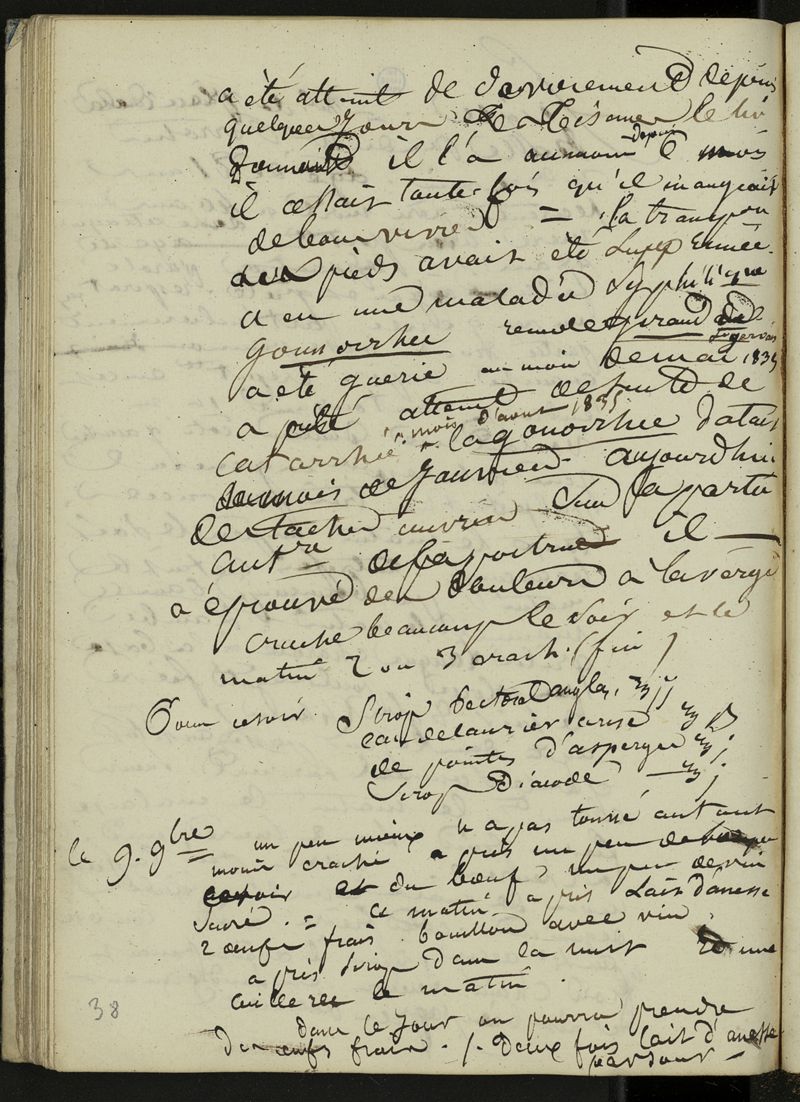 a été atteint de devoiement depuis
quelques jours
il l'a au moins depuis 6 mois
il était toutefois qu'il mangeait
de bons vivres = la transpon
aux pieds avait été supprimée
a eu une maladie syphilique
gonnorrhée
a été guerie au mois de mai 1835
a été atteint de suite de
catarrhe mois d'aout 1835 la gonorrhée datait
du mois de janvier aujourd'hui
des taches sur la partie
antre de la poitrine il
a éprouvé des douleurs à la verge
crache beaucoup le soir et le
matin 2 ou 3 crach. (fin)
Pour ce soir Sirop pectoral anglas. ʒ jj
eau de laurier cerise
de pointes d'asperges ʒ j
Sirop diacode — ʒ j
le 9. 9bre un peu mieux n'a pas toussé autant
moins craché a pris un peu de
et du bœuf un peu de vin
sucré. = ce matin a pris lait d'anesse
2 œufs frais bouillon avec vin.
a pris sirop dans la nuit et une
cuilleree le matin.
dans le jour on pourra prendre
des œufs frais. /. deux fois lait d'anesse
par jour —
38